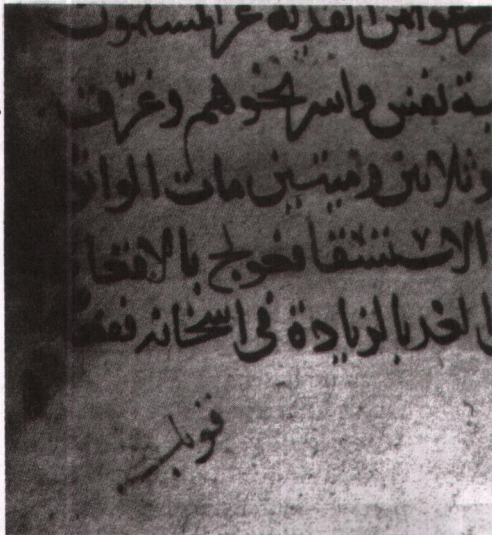 من الفدية عن المسلمون
نفس واسرىحوهم وعرّف
وثلاثين وميتين مات الواثق
الاستسقا فعولج بالاقعا
لغد بالزيادة في اسخانه ففعل
قوبل